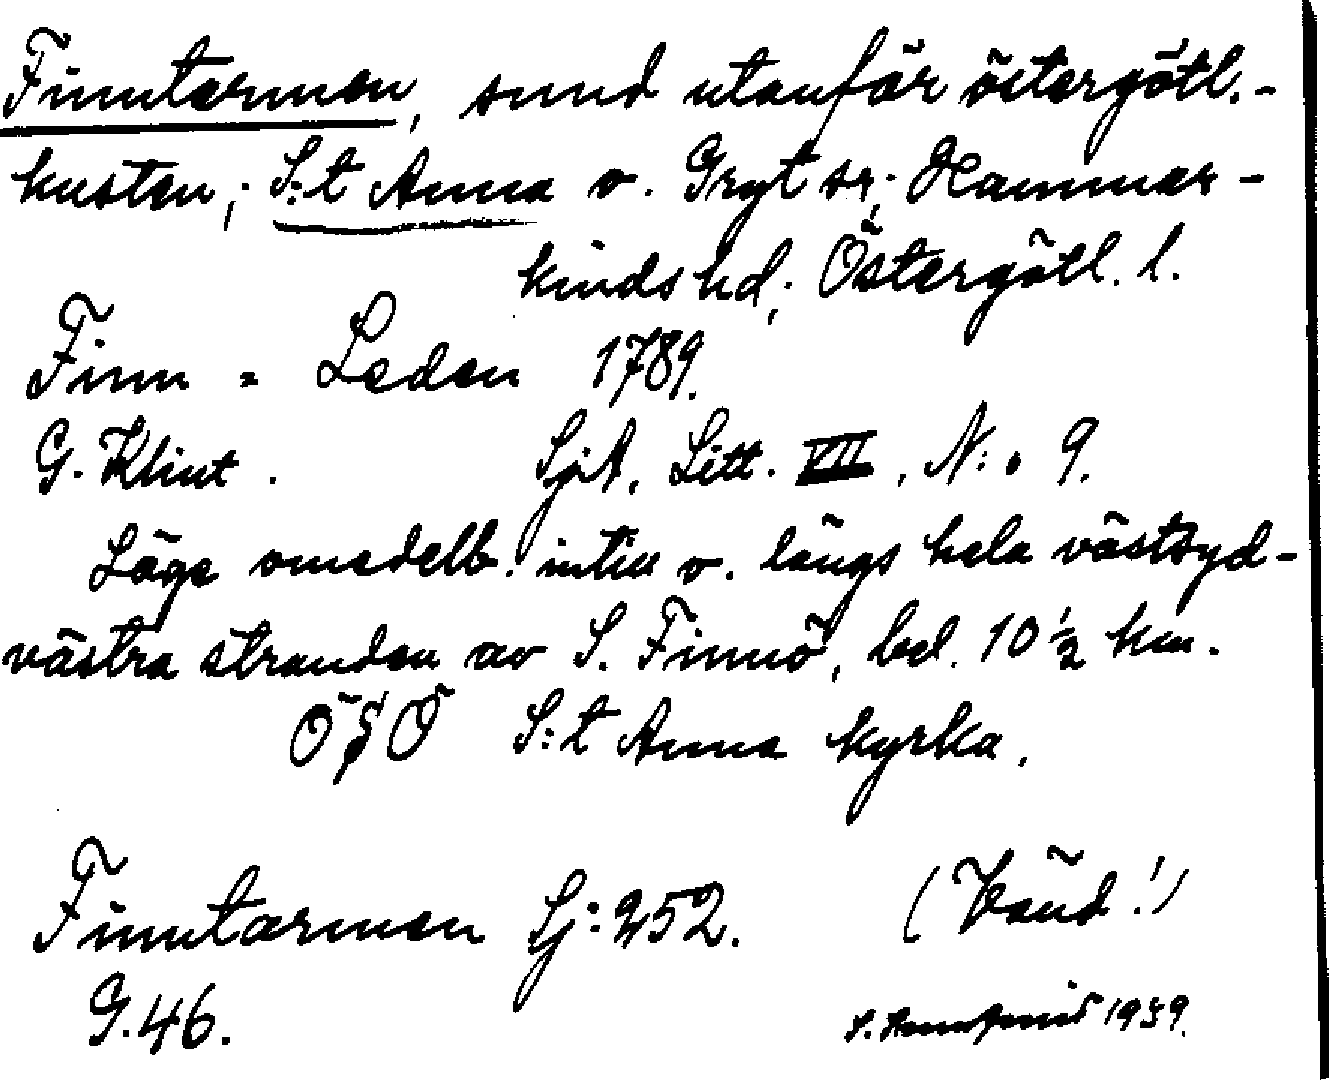 Finntarmen, sund utanför östergötl.-
kusten; S:t Anna o. Gryt sr; Hammar-
kinds hd; Östergötl. l.
Finn = Leden 1789.
G. Klint. SjA, Litt. VII, N:o 9.
Läge omedelb. intill o. längs hela västsyd-
västra stranden av S. Finnö, bel. 10 1/2 km.
ÖSÖ S:t Anna kyrka.
Finntarmen Sj: 252. (Vänd!)
G. 46.
1939.